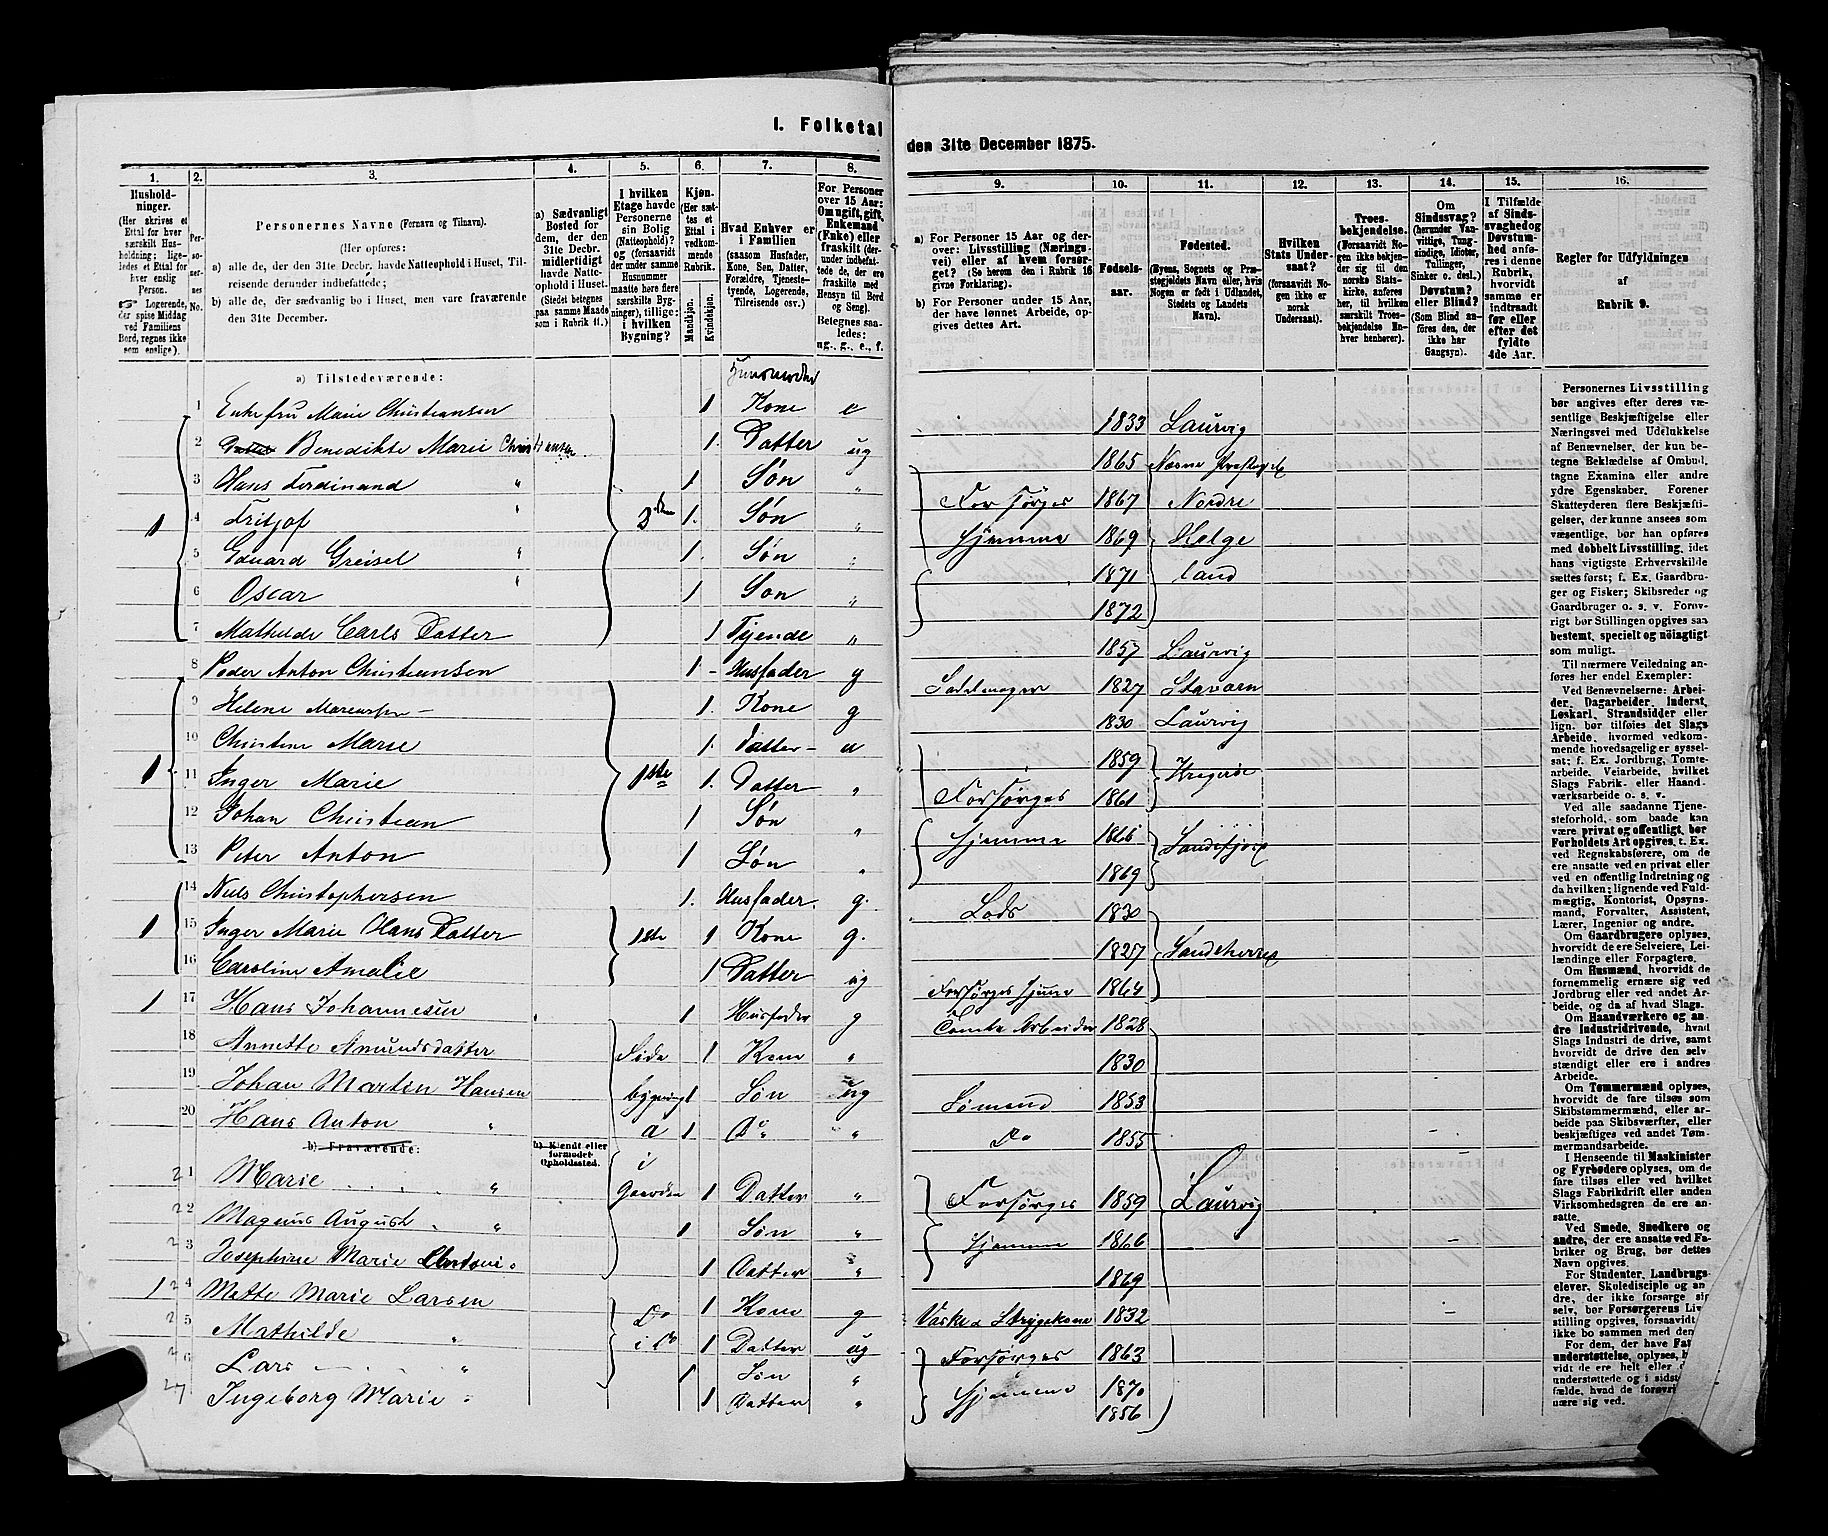 I. Folketal den 31te December 1875.
1. 2. 3. 4. 5. 6. 7. 8. 9. 10. 11. 12. 13. 14. 15. 16.
Husholdninger.
(Her skrives et Ettal for hver særskilt Husholdning; ligeledes et Ettal for hver enslig Person.
☞ Logerende, der spise Middag ved Familiens Bord, regnes ikke som enslige).
Personernes No.
Personernes Navne (Fornavn og Tilnavn).
(Her opføres:
a) alle de, der den 31te Decbr. havde Natteophold i Huset, Tilreisende derunder indbefattede;
b) alle de, der sædvanlig bo i Huset, men vare fraværende den 31te December.
a) Sædvanligt Bosted for dem, der den 31te Decbr. midlertidigt havde Natteophold i Huset. (Stedet betegnes paa samme Maade som i Rubrik 11.)
I hvilken Etage havde Personerne sin Bolig (Natteophold)? og (forsaavidt der under samme Husnummer maatte høre flere særskilte Bygninger), tillige: i hvilken Bygning?
Kjøn. (Her sættes et Ettal i vedkommende Rubrik.
Mandkjøn. Kvindekjøn.
Hvad Enhver er i Familien (saasom Husfader, Kone, Søn, Datter, Forældre, Tjenestetyende, Logerende, Tilreisende osv.)
For Personer over 15 Aar: Om ugift, gift, Enkemand (Enke) eller fraskilt (derunder indbefattede de, der ere fraskilte med Hensyn til Bord og Seng). Betegnes saaledes: ug., g., e., f.
a) For Personer 15 Aar og derover: Livsstilling (Næringsvei) eller af hvem forsørget? (Se herom den i Rubrik 16 givne Forklaring).
b) For Personer under 15 Aar, der have lønnet Arbeide, opgives dettes Art.
Fødselsaar.
Fødested. (Byens, Sognets og Præstegjeldets Navn, eller, hvis Nogen er født i Udlandet, Stedets og Landets Navn).
Hvilken Stats Undersaat? (forsaavidt Nogen ikke er norsk Undersaat).
Troesbekjendelse. (Forsaavidt Nogen ikke bekjender sig til den norske Statskirke, anføres her, til hvilken særskilt Troesbekjendelse Enhver henhører).
Om Sindssvag? (herunder Vanvittige, Tungsindige, Idioter, Tullinger, Sinker o. desl.) Døvstum? eller Blind? (Som Blind anføres den, der ikke har Gangsyn).
I Tilfælde af Sindssvaghed og Døvstumhed anføres i denne Rubrik, hvorvidt samme er indtraadt før eller efter det fyldte 4de Aar.
Regler for Udfyldningen af Rubrik 9.
a) Tilstedeværende:
1 Enkefru Marie Christiansen 1 Kone e 1833 Laurvig
2 Benedikte Marie Christiansen 1 Datter ug 1865 Næsne Præstegjel
3 Hans Ferdinand " 1 Søn " Forsørges 1867 Nordre
1 4 Fritjof " 1 Søn " Hjemme 1869 Helge
5 Eduard Greisel " 1 Søn " 1871 land
6 Oscar " 1 Søn " 1872
7 Mathilde Carls Datter 1 Tjende " 1857 Laurvig
8 Peder Anton Christiansen 1 Husfader g Sadelmager 1827 Staværn
9 Helene 1 Kone g 1830 Laurvig
10 Christine Marie 1 Datter u 1859 Kragerøe
1 11 Inger Marie 1ste 1 Datter " Forsørges 1861
12 Johan Christian 1 Søn " Hjemme Sandefjord
13 Peter Anton 1 Søn " 1869
14 Niels Christophersen 1 Husfader g. Lods 1830
1 15 Inger Marie Hans Datter 1ste 1 Kone g. 1827 Sandeherred
16 Caroline Amalie 1 Datter ug Forsørges Hjeme 1864
1 17 Hans Johannesen 1 Husfader g Arbeider 1828
18 Annette Amundsdatter Side 1 Kone " 1830
19 Johan Martin Hansen bygning 1 Søn ug Sømand 1853
20 Hans Anton " a 1 Do " Do 1855
b) Fraværende: b) Kjendt eller formodet Opholdssted.
21 Marie " i Gaarden 1 Datter " Forsørges 1859 Laurvig
22 Magnus August " 1 Søn " Hjemme 1866
23 Josephine Marie 1 Datter " 1869
1 24 Mette Marie Larsen Do 1 Kone g Vaske & Strygekone 1832
25 Mathilde " i Do 1 Datter ug Forsørges 1863
26 Lars " 1 Søn " Hjemme 1870
27 Ingeborg Marie 1 Datter " 1856
Personernes Livsstilling bør angives efter deres væsentlige Beskjæftigelse eller Næringsvei med Udelukkelse af Benævnelser, der kun betegne Beklædelse af Ombud, tagne Examina eller andre ydre Egenskaber. Forener Skatteyderen flere Beskjæftigelser, der kunne ansees som væsentlige, bør han opføres med dobbelt Livsstilling, idet hans vigtigste Erhvervskilde sættes først; f. Ex. Gaardbruger og Fisker; Skibsreder og Gaardbruger o. s. v. Forøvrigt bør Stillingen opgives saa bestemt, specielt og nöiagtigt som muligt.
Til nærmere Veiledning anføres her endel Exempler:
Ved Benævnelserne: Arbeider, Dagarbeider, Inderst, Løskarl, Strandsidder eller lign. bør tilføies det Slags Arbeide, hvormed vedkommende hovedsagelig er sysselsat; f. Ex. Jordbrug, Tomtearbeide, Veiarbeide, hvilket Slags Fabrik- eller Haandværksarbeide o. s. v.
Ved alle saadanne Tjenesteforhold, som baade kan være privat og offentligt, bør Forholdets Art opgives, t. Ex. ved Regnskabsførere, om de ere ansatte ved en privat eller ved en offentlig Indretning og da hvilken; lignende ved Fuldmægtig, Kontorist, Opsynsmand, Forvalter, Assistent, Lærer, Ingeniør og andre.
Om Gaardbrugere oplyses, hvorvidt de ere Selveiere, Leilændinge eller Forpagtere.
Om Husmænd, hvorvidt de fornemmelig ernære sig ved Jordbrug eller ved andet Arbeide, og da af hvad Slags.
Om Haandværkere og andre Industridrivende, hvad Slags Industri de drive, samt hvorvidt de drive den selvstændigt eller ere i andres Arbeide.
Om Tømmermænd oplyses, hvorvidt de fare tilsøs som Skibstømmermænd, eller arbeide paa Skibsværfter, eller beskjæftiges ved andet Tømmermandsarbeide.
I Henseende til Maskinister og Fyrbødere oplyses, om de fare tilsøs eller ved hvilket Slags Fabrikdrift eller anden Virksomhedsgren de ere ansatte.
Ved Smede, Snedkere og andre, der ere ansatte ved Fabriker og Brug, bør dettes Navn opgives.
For Studenter, Landbrugselever, Skoledisciple og andre, der ikke forsørge sig selv, bør Forsørgerens Livsstilling opgives, forsaavidt ikke bo sammen med den
For dem, der have understøttelse, oplyses, vidt de ere helt eller understøttede og i sidst fælde, hvad de forøvri nære sig ved.